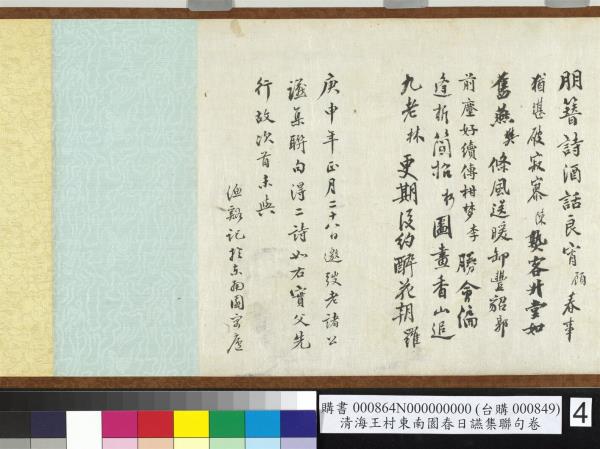 朋簪詩酒話良宵 顧 春事
猶堪破寂寥 陳 熟客升堂如
舊燕 樊 條風送暖卸豐貂 郭
前塵好續傳柑夢 李 勝會偏
逢折簡招 杉 圖畫香山追
九老 林 更期後約醉花朝 羅
庚申年正月二十八日邀弢老諸公
讌集聯句得二詩如右寶父先
行故次首未與
谿記於東南園寓廬
購書 000864N000000000 (台購 000849)
清海王村東南園春日讌集聯句卷
4